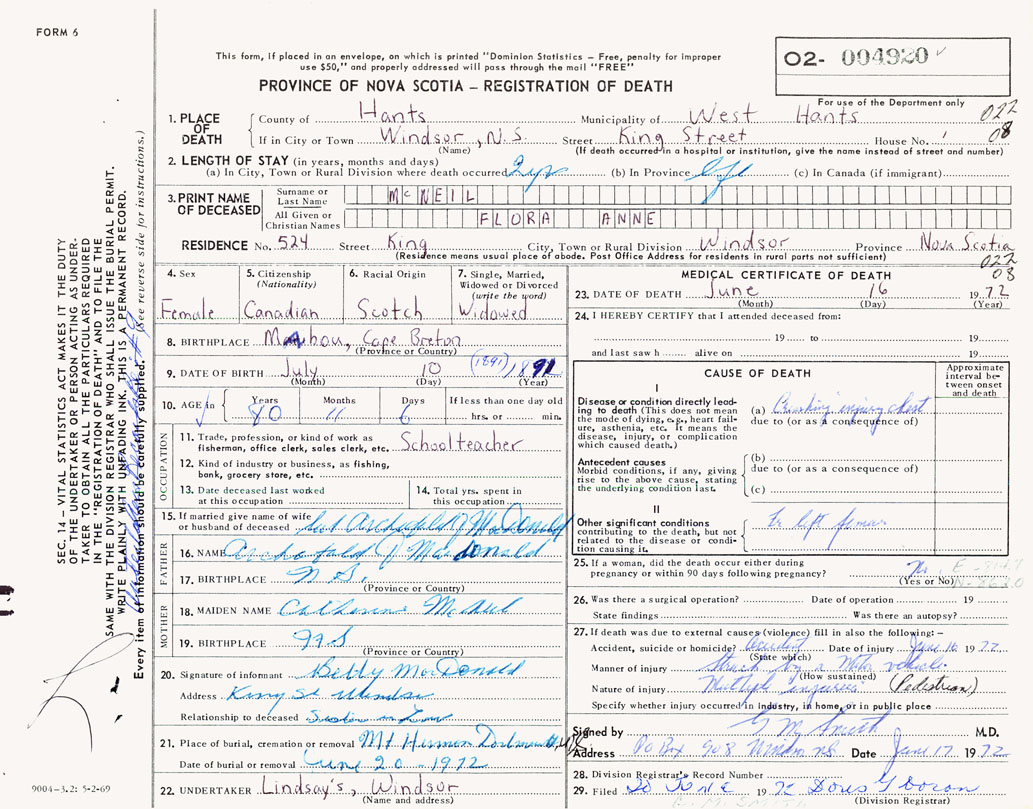 FORM 6
This form, if placed in an envelope, on which is printed "Dominion Statistics – Free, penalty for improper
use $50," and properly addressed will pass through the mail "FREE"
PROVINCE OF NOVA SCOTIA – REGISTRATION OF DEATH
O2- 004920
For use of the Department only
022
08
1. PLACE OF DEATH
County of Hants Municipality of West Hants
If in City or Town Windsor, N.S. Street King Street House No.
(Name) (If death occurred in a hospital or institution, give the name instead of street and number)
2. LENGTH OF STAY (in years, months and days)
(a) In City, Town or Rural Division where death occurred 2 yrs (b) In Province Life (c) In Canada (if immigrant)
3. PRINT NAME OF DECEASED
Surname or Last Name McNEIL
All Given or Christian Names FLORA ANNE
RESIDENCE No. 524 Street King City, Town or Rural Division Windsor Province Nova Scotia
(Residence means usual place of abode. Post Office Address for residents in rural parts not sufficient)
022
08
4. Sex
Female
5. Citizenship
(Nationality)
Canadian
6. Racial Origin
Scotch
7. Single, Married,
Widowed or Divorced
(write the word)
Widowed
8. BIRTHPLACE Mabou, Cape Breton
(Province or Country)
9. DATE OF BIRTH July 10 (1891) 1891
(Month) (Day) (Year)
10. AGE in Years Months If less than one day old
80 11 6 hrs. or min.
OCCUPATION
11. Trade, profession, or kind of work as
fisherman, office clerk, sales clerk, etc. Schoolteacher
12. Kind of industry or business, as fishing,
bank, grocery store, etc.
13. Date deceased last worked
at this occupation
14. Total yrs. spent in
this occupation
15. If married give name of wife
or husband of deceased Archibald J MacDonald
FATHER
16. NAME Archibald J MacDonald
17. BIRTHPLACE N.S.
(Province or Country)
MOTHER
18. MAIDEN NAME Catherine McNeil
19. BIRTHPLACE N S
(Province or Country)
20. Signature of informant Betty MacDonald
Address King St Windsor
Relationship to deceased Sister in Law
21. Place of burial, cremation or removal Mt Hermon Dartmouth, N.S.
Date of burial or removal June 20 - 1972
22. UNDERTAKER Lindsay's, Windsor
(Name and address)
MEDICAL CERTIFICATE OF DEATH
23. DATE OF DEATH June 16 1972
(Month) (Day) (Year)
24. I HEREBY CERTIFY that I attended deceased from:
19 to 19
and last saw h alive on 19
CAUSE OF DEATH
Approximate
interval be-
tween onset
and death
I
Disease or condition directly lead-
ing to death (This does not mean
the mode of dying, e.g., heart fail-
ure, asthenia, etc. It means the
disease, injury, or complication
which caused death.)
(a) Crushing injury chest
due to (or as a consequence of)
Antecedent causes
Morbid conditions, if any, giving
rise to the above cause, stating
the underlying condition last.
(b)
due to (or as a consequence of)
(c)
II
Other significant conditions
contributing to the death, but not
related to the disease or condi-
tion causing it.
Fx left femur
25. If a woman, did the death occur either during
pregnancy or within 90 days following pregnancy? No
(Yes or No)
26. Was there a surgical operation? Date of operation 19
State findings Was there an autopsy?
27. If death was due to external causes (violence) fill in also the following: –
Accident, suicide or homicide? Accident Date of injury June 16 1972
(State which)
Manner of injury Struck by a Motor vehicle
(How sustained)
Nature of injury Multiple injuries (Pedestrian)
Specify whether injury occurred in industry, in home, or in public place
Signed by G M Smith M.D.
Address PO Box 908 Windsor NS Date June 17 1972
28. Division Registrar's Record Number
29. Filed 20 June 1972 Doris
(Division Registrar)
SEC. 14 – VITAL STATISTICS ACT MAKES IT THE DUTY
OF THE UNDERTAKER OR PERSON ACTING AS UNDER-
TAKER TO OBTAIN ALL THE PARTICULARS REQUIRED
IN THE "REGISTRATION OF DEATH" AND TO FILE THE
SAME WITH THE DIVISION REGISTRAR WHO SHALL ISSUE THE BURIAL PERMIT.
WRITE PLAINLY WITH UNFADING INK. THIS IS A PERMANENT RECORD.
Every item of information should be carefully supplied. (See reverse side for instructions.)
9004-3.2: 5-2-69